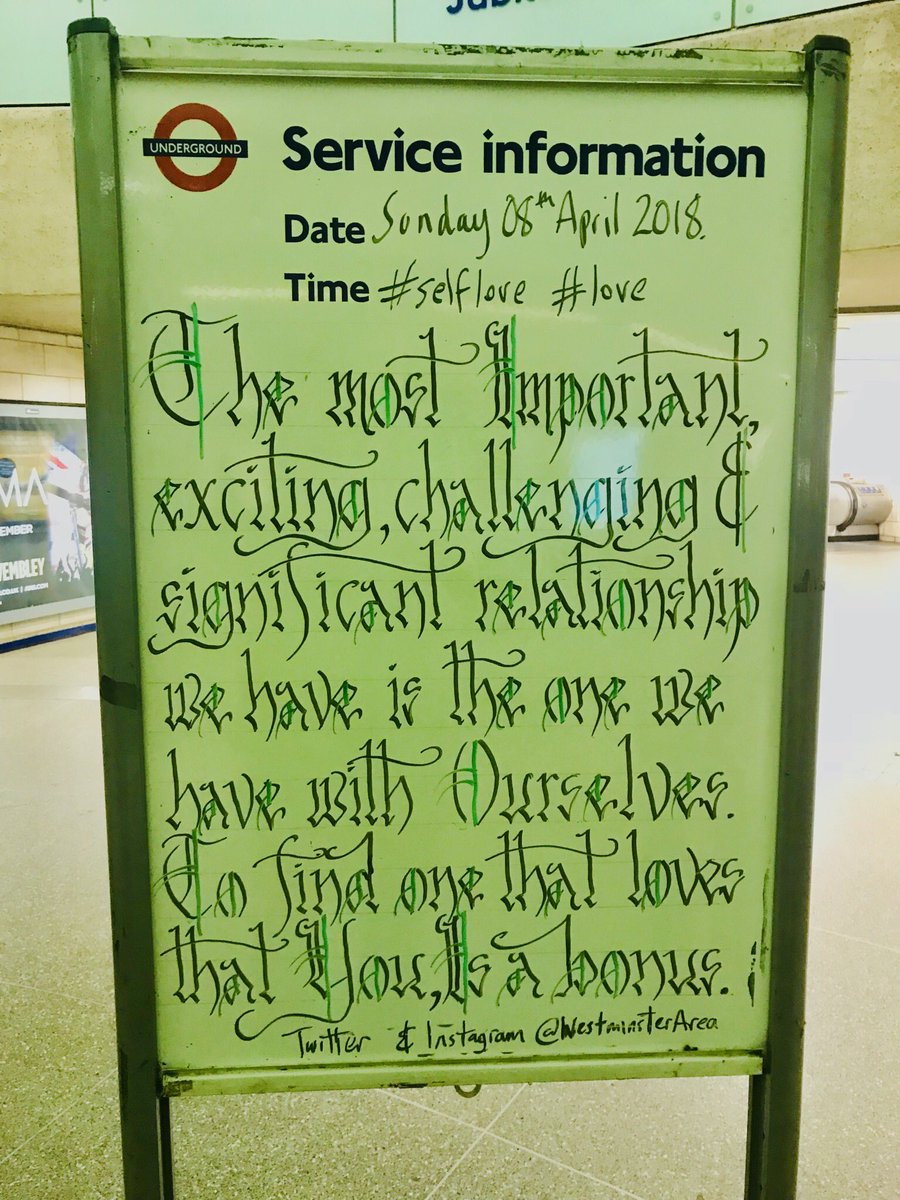 UNDERGROUND
Service information
Date Sunday 08th April 2018.
Time #selflove #love
The most Important,
exciting, challenging &
significant relationship
we have is the one we
have with Ourselves.
To find one that loves
that You, Is a bonus.
Twitter & Instagram @WestminsterArea
MA
EMBER
WEMBLEY